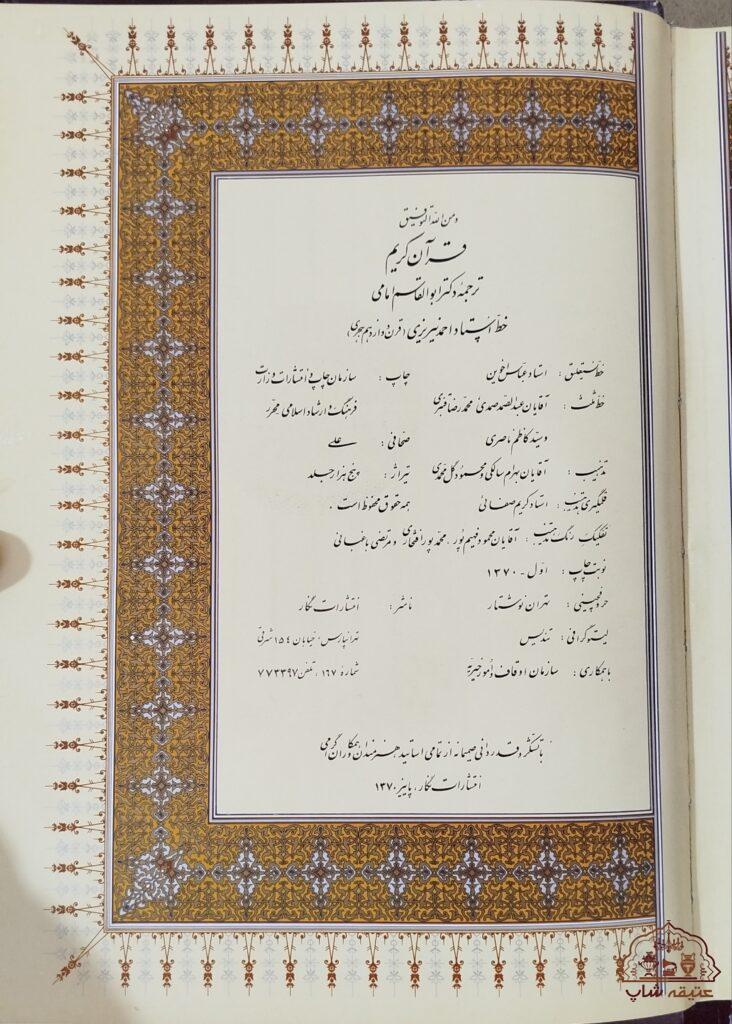 و من الله التوفیق
قرآن کریم
ترجمهٔ دکتر ابوالقاسم امامی
خط استاد احمد نیریزی (قرن دوازدهم هجری)
خط نستعلیق : استاد عباس اخوین
خط ثلث : آقایان عبدالصمد صمدی، محمدرضا قنبری
و سید کاظم ناصری
تذهیب : آقایان بهرام سالکی و محمود گل محمدی
قلمگیری تذهیب : استاد کریم صفائی
چاپ : سازمان چاپ و انتشارات وزارت
فرهنگ و ارشاد اسلامی
صحافی : علی
تیراژ : پنج هزار جلد
همه حقوق محفوظ است .
تفکیک رنگ تذهیب : آقایان محمود فهیم پور، محمد پورافتخاری و مرتضی باغبانی
نوبت چاپ : اول - ۱۳۷۰
حروفچینی : تهران نوشتار
لیتوگرافی : تندیس
با همکاری : سازمان اوقاف و امور خیریه
ناشر : انتشارات نگار
تهرانپارس، خیابان ۱۵۴ شرقی
شمارهٔ ۱۶۷، تلفن ۷۷۳۳۹۷
با تشکر و قدردانی صمیمانه از تمامی اساتید هنرمندان و همکاران گرامی
انتشارات نگار، پاییز ۱۳۷۰
عتیقه شاپ